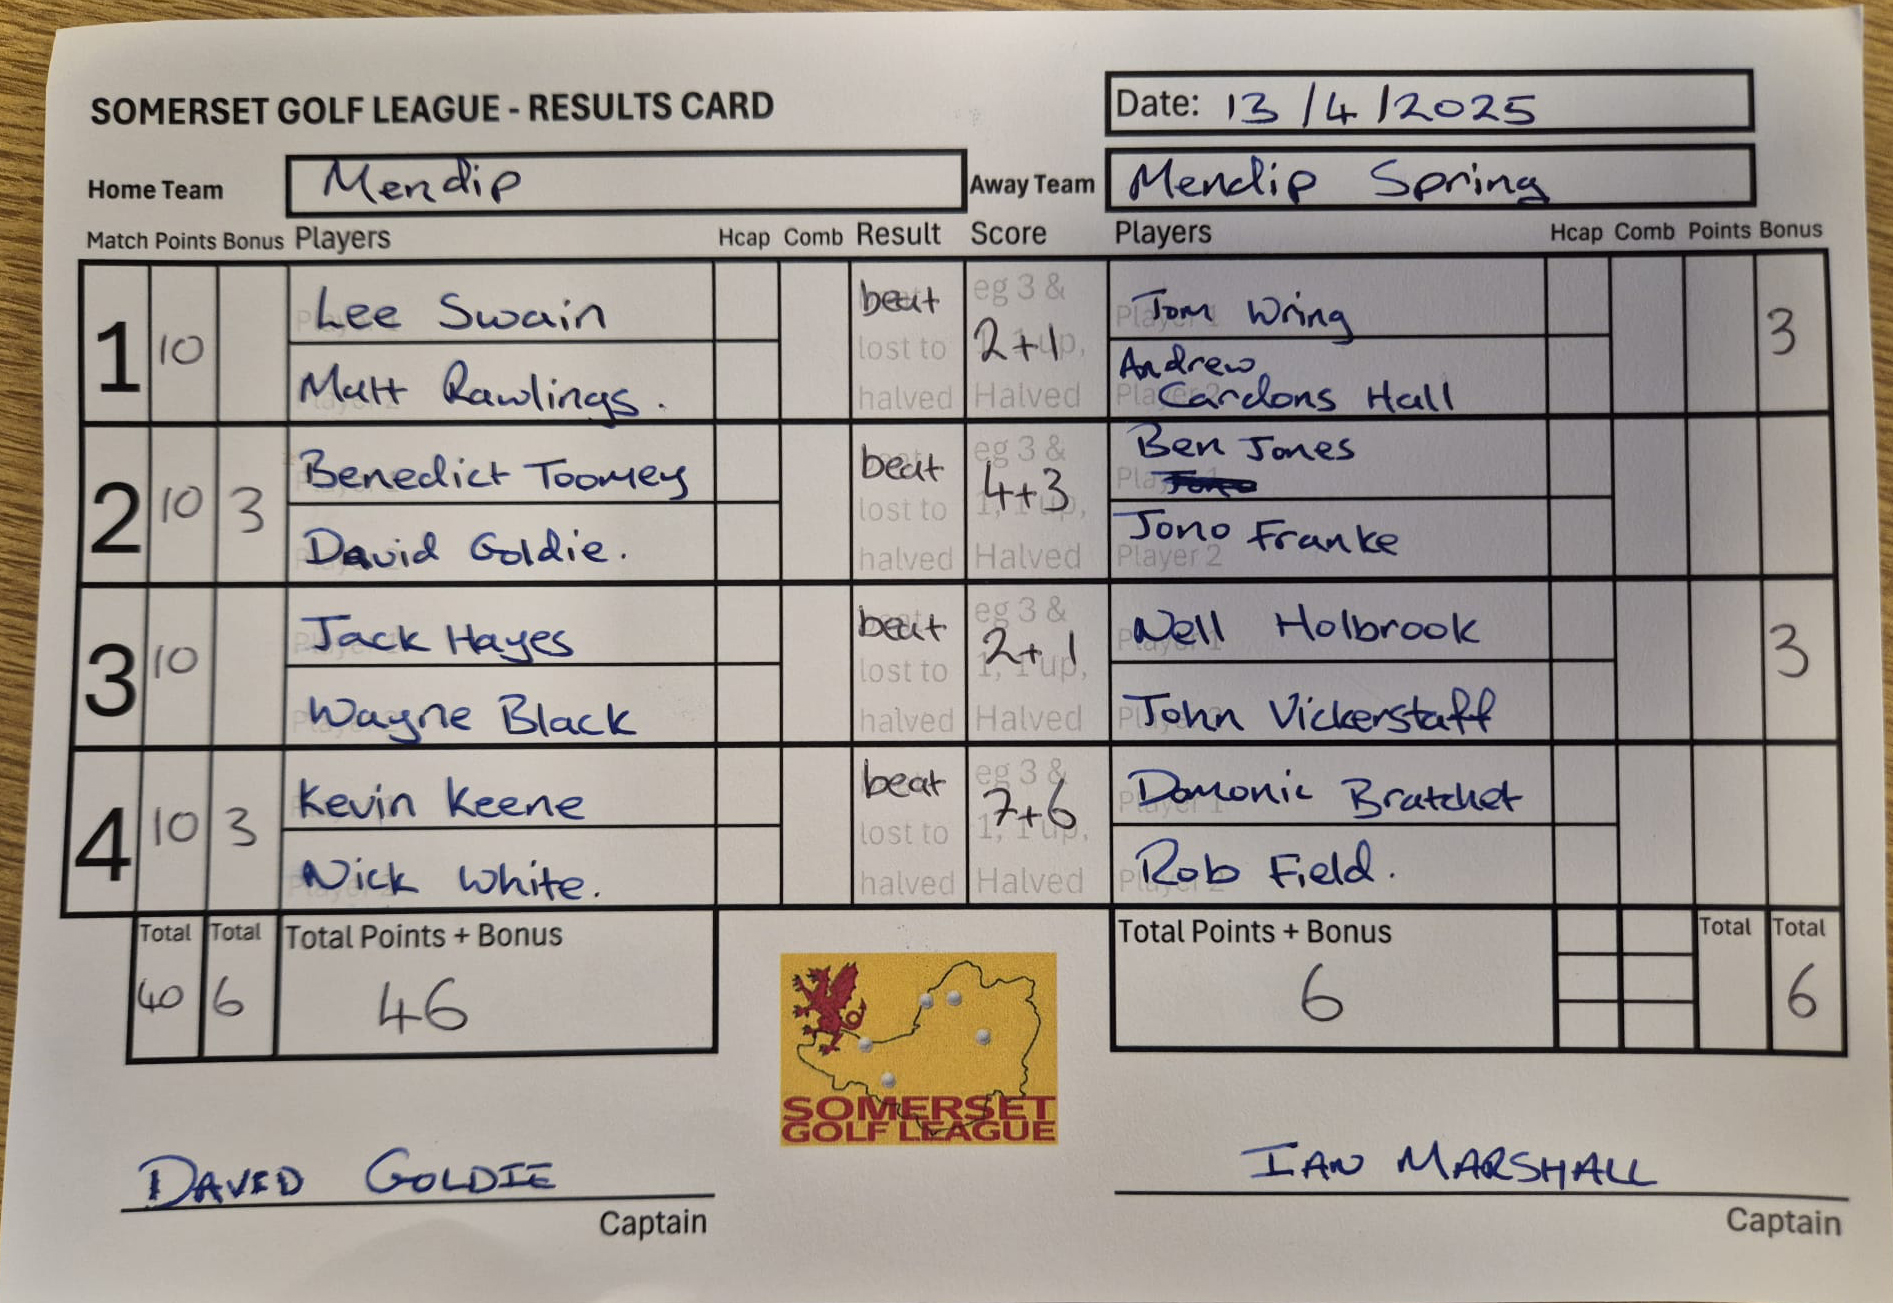 SOMERSET GOLF LEAGUE - RESULTS CARD
Date: 13/4/2025
Home Team Mendip Away Team Mendip Spring
Match Points Bonus Players Hcap Comb Result Score Players Hcap Comb Points Bonus
1 10 Lee Swain beat 2+1 Tom Wring 3
Matt Rawlings. lost to halved Halved Andrew Cardons Hall
2 10 3 Benedict Toomey beat eg 3 & 4+3 Ben Jones
David Goldie. lost to halved Halved Jono Franke
Player 2
3 10 Jack Hayes beat eg 3 & 2+1 Nell Holbrook 3
Wayne Black lost to 1, 1 up, halved Halved John Vickerstaff
4 10 3 Kevin Keene beat eg 3 & 7+6 Domonic Bratchet
Nick White. lost to 1, 1 up, halved Halved Rob Field.
Total Total Total Points + Bonus Total Points + Bonus Total Total
40 6 46 6 6
SOMERSET
GOLF LEAGUE
DAVED GOLDIE IAN MARSHALL
Captain Captain